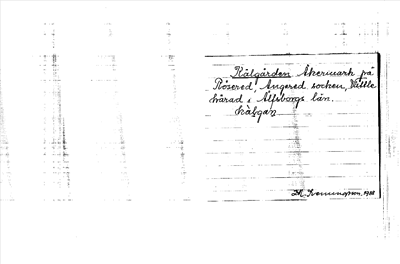 Kålgården Åkermark på
Rösered, Angered socken, Vättle
härad i Älfsborgs län.
kàlgaṇ
1908